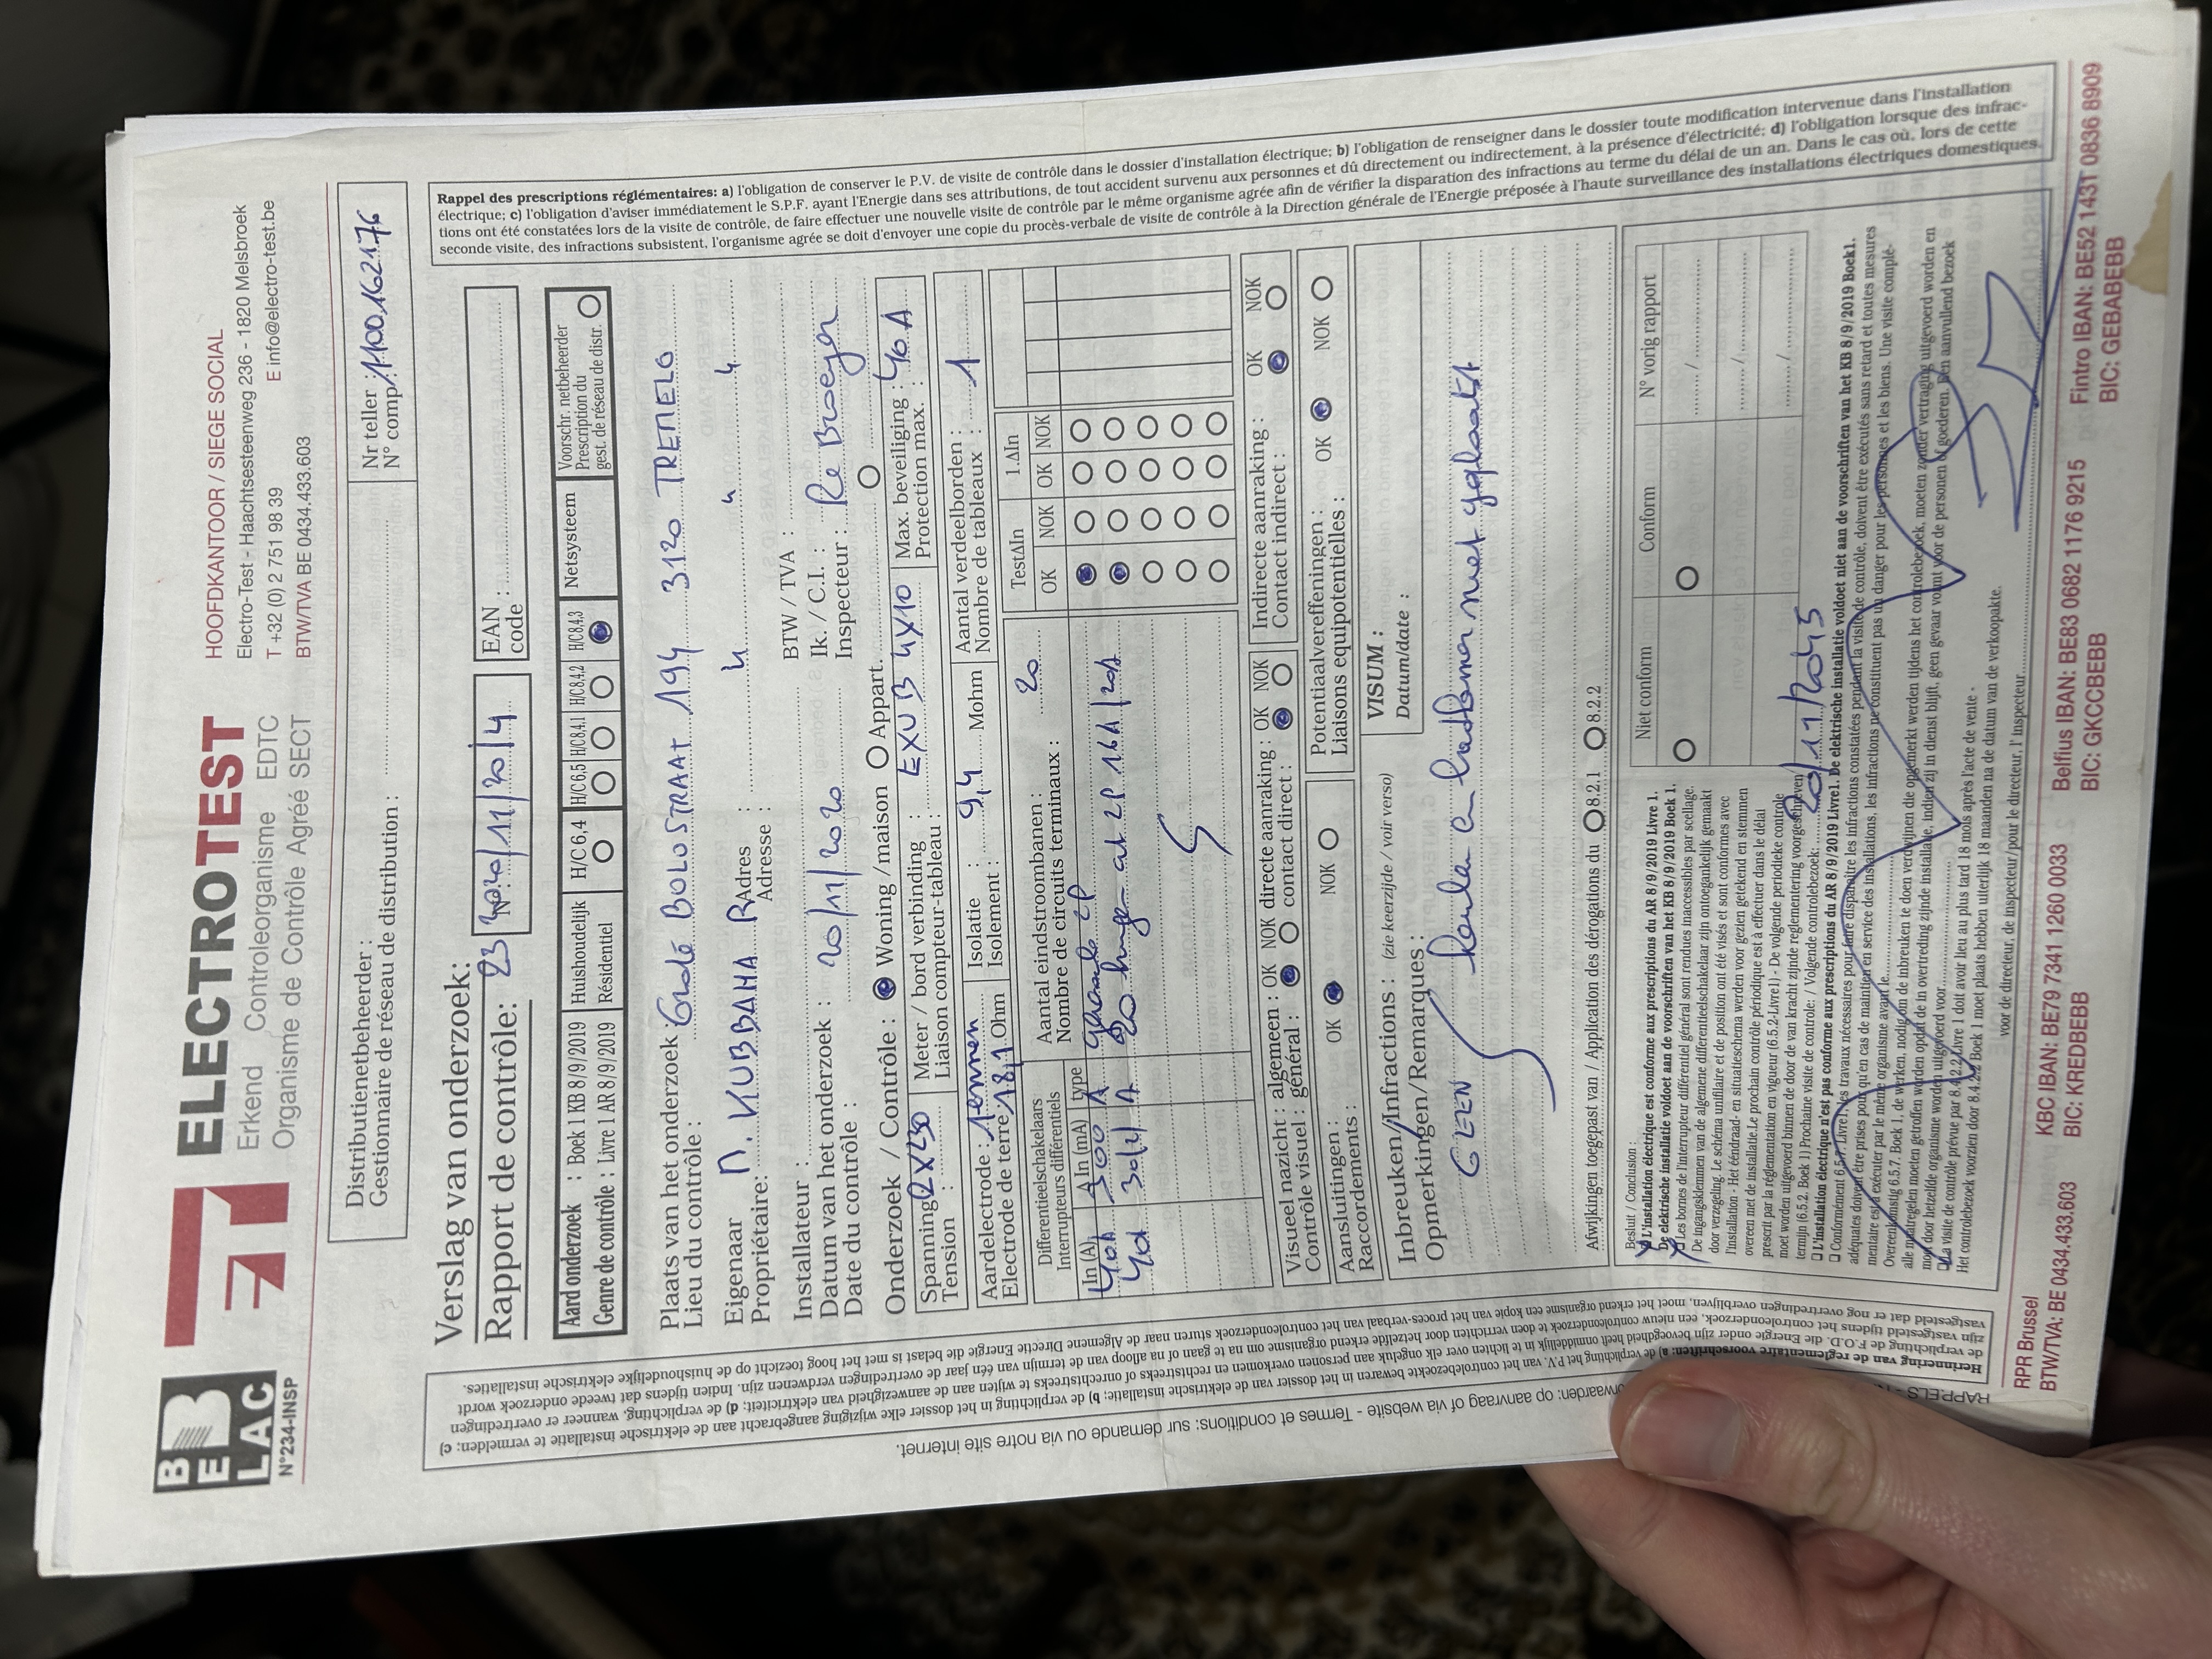 BE
LAC
N°234-INSP
ELECTROTEST
Erkend Controleorganisme EDTC
Organisme de Contrôle Agréé SECT
HOOFDKANTOOR / SIEGE SOCIAL
Electro-Test - Haachtsesteenweg 236 - 1820 Melsbroek
T +32 (0) 2 751 98 39 E info@electro-test.be
BTW/TVA BE 0434.433.603
Distributienetbeheerder :
Gestionnaire de réseau de distribution :
Nr teller :
N° comp
Verslag van onderzoek:
Rapport de contrôle: 23
N°
EAN
code :
Aard onderzoek : Boek 1 KB 8/9/2019 Huishoudelijk H/C 6,4 H/C 6,5 H/C8,4,1 H/C8,4,2 H/C8,4,3 Netsysteem Voorschr. netbeheerder
Genre de contrôle : Livre 1 AR 8/9/2019 Résidentiel Prescription du
gest. de réseau de distr.
Plaats van het onderzoek : Grote BOLOSTRAAT 194 3120 TREMELO
Lieu du contrôle :
Eigenaar Adres
Propriétaire: Adresse :
Installateur : BTW / TVA :
Datum van het onderzoek : 20/11/2020 Ik. / C.I. :
Date du contrôle : Inspecteur :
Onderzoek / Contrôle : Woning / maison Appart.
Spanning 2x230 Meter / bord verbinding : EXVB 4x10 Max. beveiliging : 40 A
Tension : Liaison compteur-tableau : Protection max. :
Aardelektrode : Isolatie : 9,4 Mohm Aantal verdeelborden : 1
Electrode de terre: 18,1 Ohm Isolement : Nombre de tableaux :
Differentieelschakelaars Aantal eindstroombanen : 20
Interrupteurs différentiels Nombre de circuits terminaux :
TestΔIn 1 ΔIn
In (A) Δ In (mA) type OK NOK OK NOK
40A 300 A
40 30 A
Visueel nazicht : algemeen : OK NOK directe aanraking : OK NOK Indirecte aanraking : OK NOK
Contrôle visuel : général : contact direct : Contact indirect :
Aansluitingen : OK NOK Potentiaalvereffeningen : OK NOK
Raccordements : Liaisons equipotentielles :
Inbreuken/Infractions : (zie keerzijde / voir verso) VISUM :
Opmerkingen/Remarques : Datum/date :
GEEN
Afwijkingen toegepast van / Application des dérogations du 0821 0822
Besluit / Conclusion :
L'installation électrique est conforme aux prescriptions du AR 8/9/2019 Livre 1.
De elektrische installatie voldoet aan de voorschriften van het KB 8/9/2019 Boek 1.
Les bornes de l'interrupteur différentiel général sont rendues inaccessibles par scellage.
De ingangsklemmen van de algemene differentieelschakelaar zijn ontoegankelijk gemaakt
door verzegeling. Le schéma unifilaire et de position ont été visés et sont conformes avec
l'installation - Het ééndraad- en situatieschema werden voor gezien getekend en stemmen
overeen met de installatie. Le prochain contrôle périodique est à effectuer dans le délai
prescrit par la réglementation en vigueur (6.5.2-Livre1) - De volgende periodieke controle
moet worden uitgevoerd binnen de door de van kracht zijnde reglementering voorgeschreven
termijn (6.5.2. Boek 1) Prochaine visite de contrôle: / Volgende controlebezoek: 20/11/2045
Niet conform Conform N° vorig rapport
L'installation électrique n'est pas conforme aux prescriptions du AR 8/9/2019 Livre1. De elektrische installatie voldoet niet aan de voorschriften van het KB 8/9/2019 Boek1.
Conformément 6.5.7. Livre1, les travaux nécessaires pour faire disparaître les infractions constatées pendant la visite de contrôle, doivent être exécutés sans retard et toutes mesures
adéquates doivent être prises pour qu'en cas de maintien en service des installations, les infractions ne constituent pas un danger pour les personnes et les biens. Une visite complé-
mentaire est à exécuter par le même organisme avant le
Overeenkomstig 6.5.7. Boek 1, de werken, nodig om de inbreuken te doen verdwijnen die opgemerkt werden tijdens het controlebezoek, moeten zonder vertraging uitgevoerd worden en
alle maatregelen moeten getroffen worden opdat de in overtreding zijnde installatie, indien zij in dienst blijft, geen gevaar vormt voor de personen of goederen. Een aanvullend bezoek
moet door hetzelfde organisme worden uitgevoerd voor
La visite de contrôle prévue par 8.4.2. Livre 1 doit avoir lieu au plus tard 18 mois après l'acte de vente -
Het controlebezoek voorzien door 8.4.2. Boek 1 moet plaats hebben uiterlijk 18 maanden na de datum van de verkoopakte.
voor de directeur, de inspecteur/pour le directeur, l'inspecteur
RPR Brussel
BTW/TVA: BE 0434.433.603
KBC IBAN: BE79 7341 1260 0033
BIC: KREDBEBB
Belfius IBAN: BE83 0682 1176 9215
BIC: GKCCBEBB
Fintro IBAN: BE52 1431 0836 8909
BIC: GEBABEBB
Rappel des prescriptions réglémentaires: a) l'obligation de conserver le P.V. de visite de contrôle dans le dossier d'installation électrique; b) l'obligation de renseigner dans le dossier toute modification intervenue dans l'installation
électrique; c) l'obligation d'aviser immédiatement le S.P.F. ayant l'Energie dans ses attributions, de tout accident survenu aux personnes et dû directement ou indirectement, à la présence d'électricité; d) l'obligation lorsque des infrac-
tions ont été constatées lors de la visite de contrôle, de faire effectuer une nouvelle visite de contrôle par le même organisme agrée afin de vérifier la disparation des infractions au terme du délai de un an. Dans le cas où, lors de cette
seconde visite, des infractions subsistent, l'organisme agrée se doit d'envoyer une copie du procès-verbale de visite de contrôle à la Direction générale de l'Energie préposée à l'haute surveillance des installations électriques domestiques.
Herinnering van de reglementaire voorschriften: a) de verplichting het P.V. van het controlebezoekte bewaren in het dossier van de elektrische installatie; b) de verplichting in het dossier elke wijziging aangebracht aan de elektrische installatie te vermelden; c)
de verplichting de F.O.D. die Energie onder zijn bevoegdheid heeft onmiddellijk in te lichten over elk ongeluk aan personen overkomen en rechtstreeks of onrechtstreeks te wijten aan de aanwezigheid van elektriciteit; d) de verplichting, wanneer er overtredingen
zijn vastgesteld tijdens het controleonderzoek, een nieuw controleonderzoek te doen verrichten door hetzelfde erkend organisme om na te gaan of na afloop van de termijn van één jaar de overtredingen verdwenen zijn. Indien tijdens dat tweede onderzoek wordt
vastgesteld dat er nog overtredingen overblijven, moet het erkend organisme een kopie van het proces-verbaal van het controleonderzoek sturen naar de Algemene Directie Energie die belast is met het hoog toezicht op de huishoudelijke elektrische installaties.
op aanvraag of via website - Termes et conditions: sur demande ou via notre site internet.